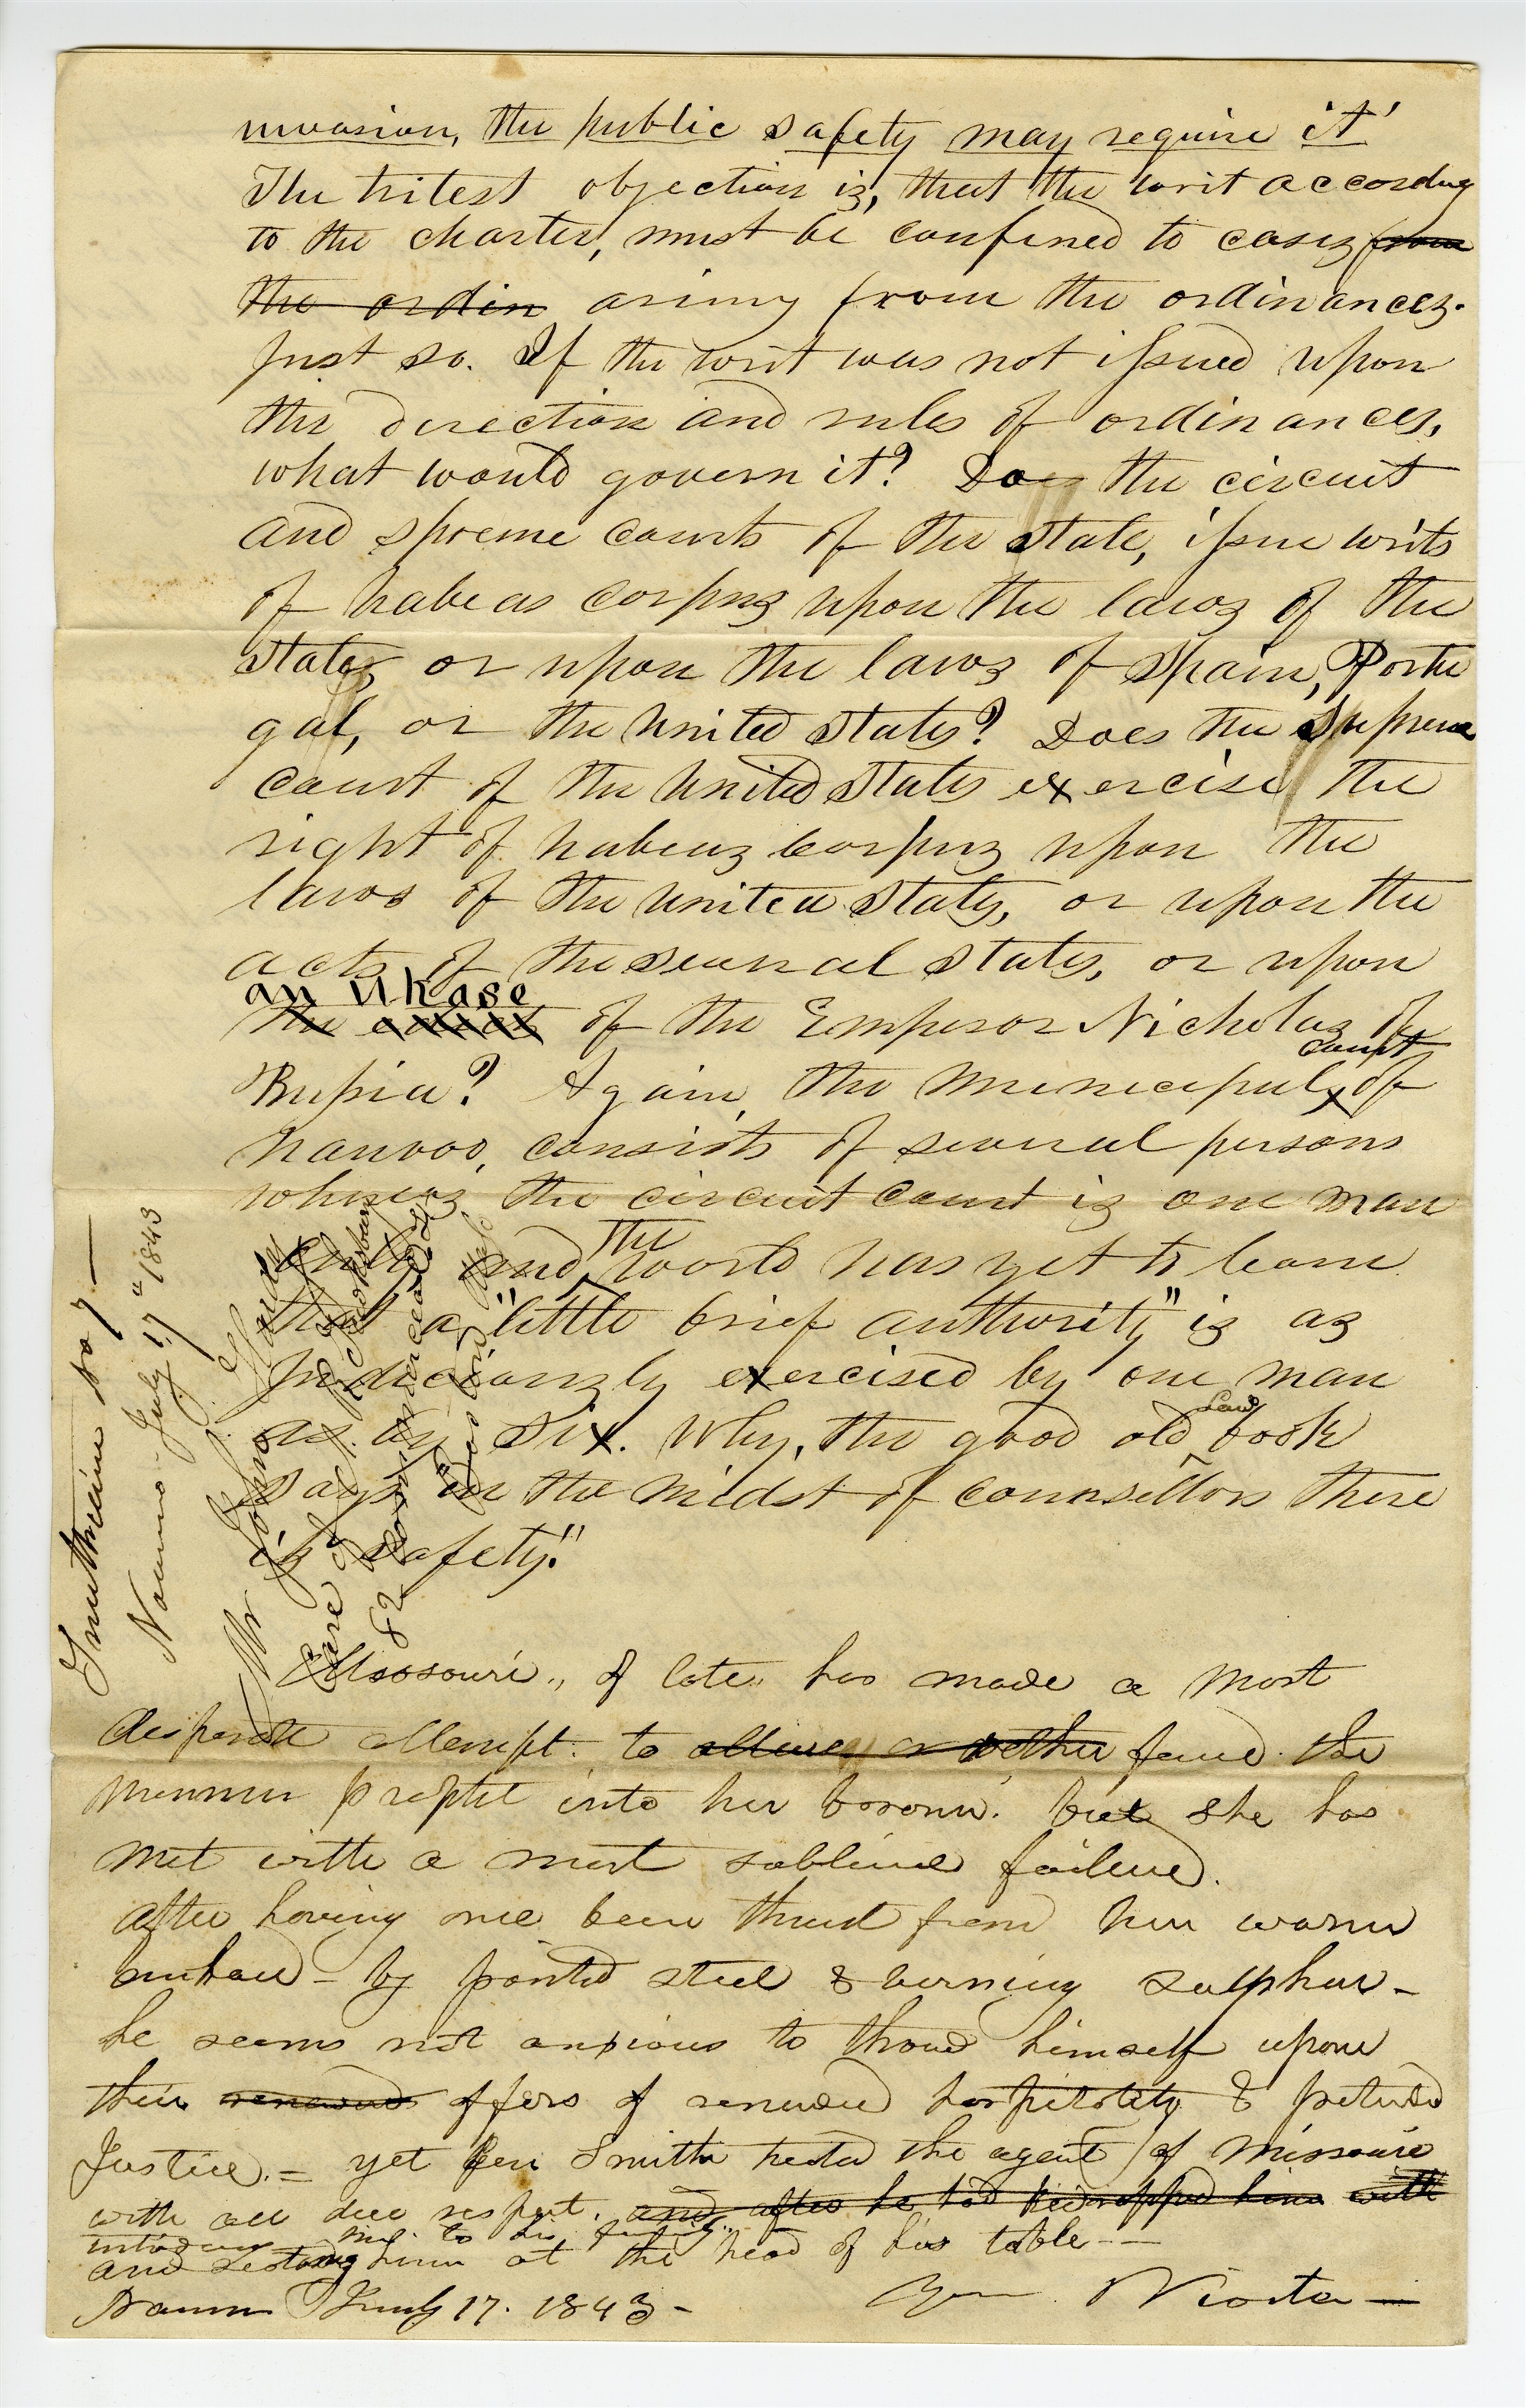 invasion, the public safety may require it'
The tritest objection is, that the writ according
to the charter, must be confined to cases from
the ordin arising from the ordinances.
Just so. If the writ was not issued upon
the direction and rules of ordinances,
what would govern it? Do the circuit
and spreme courts of the state, issue writs
of habeas corpus upon the laws of the
state, or upon the laws of Spain, Portu
gal, or the United States? Does the Supreme
court of the United States exercise the
right of habeas corpus upon the
laws of the United States, or upon the
acts of the several States, or upon
an Ukase
the of the Emperor Nicholas of
Russia? Again, the municipal court of
Nauvoo, consists of several persons
whereas the circuit court is one man
only and the world has yet to learn
that a "little brief authority" is as
judiciously exercised by one man
as by six. Why, the good old Law book
says "in the midst of counsellors there
is safety."
Missouri, of late, has made a most
desperate attempt to allure force the
mormon prophet into her bosom. but she has
met with a most sublime failure.
after having once been thrust from her warm
embrace - by pointed steel & burning sulphur -
he seems not anxious to throw himself upon
their renewed offers of renewed hospitality & pretended
Justice. = yet Gen Smith treated the agent of Missouri
with all due respect. and after he had kidnapped him with
introducing him to his family
and seating him at the head of his table - -
Nauvoo July 17. 1843 -
Viator -
Smithreein No 7 -
Nauvoo - July 17 1843
Mr John Hardy
Care of
82 Commercial St